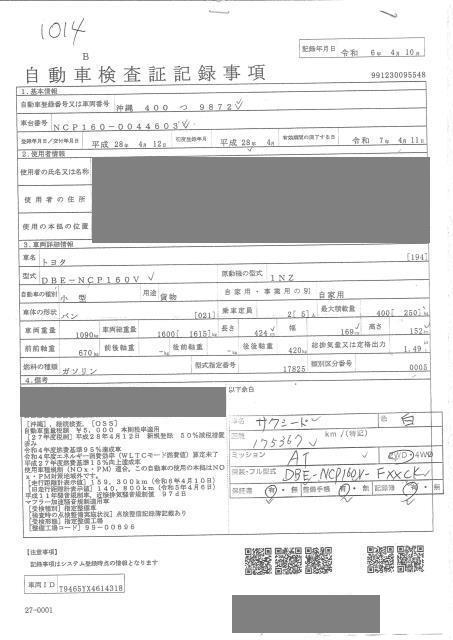 1014
B
記録年月日 令和 6年 4月 10日
自動車検査証記録事項
991230095548
1.基本情報
自動車登録番号又は車両番号 沖縄 400 つ 9872
車台番号 NCP160-0044603
登録年月日/交付年月日 平成 28年 4月 12日 初度登録年月 平成 28年 4月 有効期間の満了する日 令和 7年 4月 11日
2.使用者情報
使用者の氏名又は名称
使用者の住所
使用の本拠の位置
3.車両詳細情報
車名 トヨタ [194]
型式 DBE-NCP160V 原動機の型式 1NZ
自動車の種別 小型 用途 貨物 自家用・事業用の別 自家用
車体の形状 バン [021] 乗車定員 2[ 5]人 最大積載量 400[ 250]kg
車両重量 1090kg 車両総重量 1600[ 1615]kg 長さ 424cm 幅 169cm 高さ 152cm
前前軸重 670kg 前後軸重 -kg 後前軸重 -kg 後後軸重 420kg 総排気量又は定格出力 1.49
燃料の種類 ガソリン 型式指定番号 17825 類別区分番号 0005
4.備考
以下余白
[沖縄],継続検査,[OSS]
自動車重量税額 ¥5,000 本則税率適用
[27年度税制]平成28年4月12日 新規登録 50%減税措置
済み
令和4年度燃費基準95%達成車
令和4年度エネルギー消費効率(WLTCモード燃費値)算定未了
平成27年度燃費基準15%向上達成車
使用車種規制(NOx・PM)適合,この自動車の使用の本拠はNO
x・PM対策地域外です。
[走行距離計表示値]159,300km(令和6年4月10日)
[旧走行距離計表示値]140,800km(令和5年4月6日)
平成11年騒音規制車,近接排気騒音規制値 97dB
マフラー加速騒音規制適用車
[受検種別]指定整備車
[検査時の点検整備実施状況]点検整備記録簿記載あり
[受検形態]指定整備工場
[整備工場コード]95-00896
車名 サクシード 色 白
距離 175367 km/(特記)
ミッション AT 2WD・4WD
類別・フル型式 DBE-NCP160V-FXXCK
保証書 有・無 整備手帳 有・無 記録簿 有・無
[注意事項]
記録事項はシステム登録時点の情報となります
車両ID T9465YX4614318
27-0001